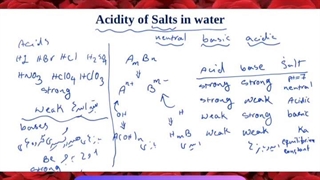 Acidity of Salts in water
neutral basic acidic
Acids
HI HBr HCl H2SO4
HNO3 HClO4 HClO3
strong
weak
bases
Be
strong
AmBn
A^n+ B^m-
OH H
A(OH)n HmB
Acid base Salt
strong strong pH=7 neutral
strong weak Acidic
weak strong basic
weak weak Ka
equilibrium
constant